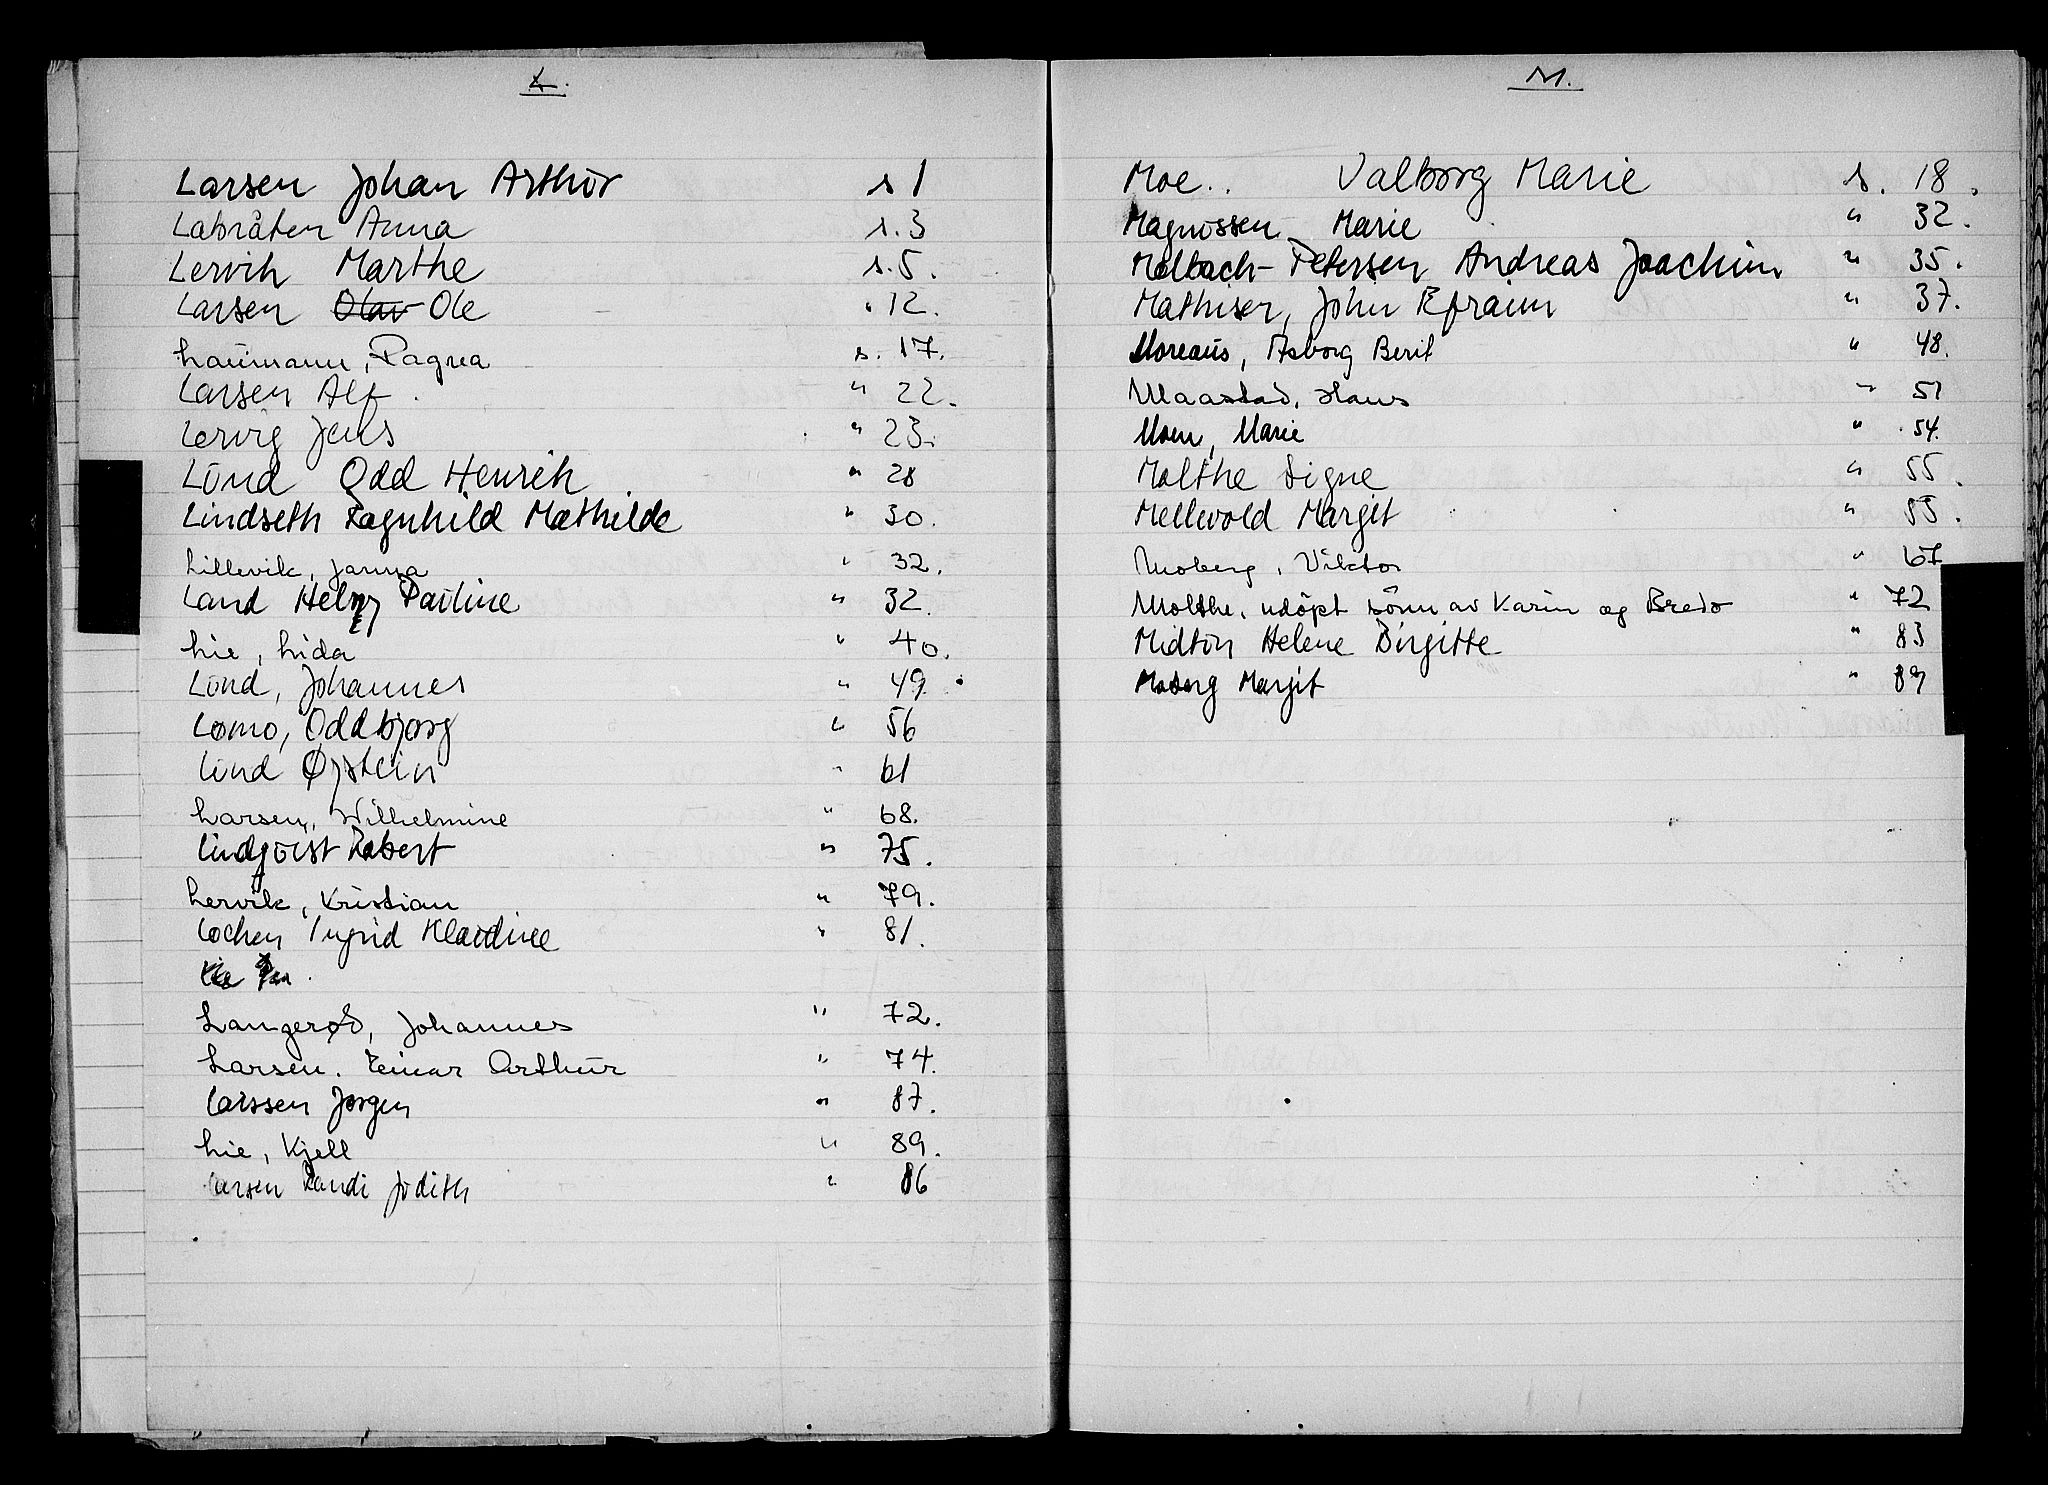 L.
Larsen Johan Arthūr s 1
Labråten Anna s. 3
Lervik Marthe s. 5.
Larsen Olav Ole " 12.
Laūmann, Ragna s. 17.
Larsen Alf. " 22.
Lervig Jens " 23.
Lūnd Odd Henrik " 28
Lindseth Ragnhild Mathilde " 30.
Lillevik, Janna " 32.
Land Helny Paūline " 32.
Lie, Lida " 40.
Lūnd, Johannes " 49.
Lømo, Oddbjørg " 56
Lūnd Øystein " 61
Larsen, Wilhelmine " 68.
Lindqvist Robert " 75.
Lervik, Kristian " 79.
Lochen Ingrid Klaūdine " 81.
Lie
Langerød, Johannes " 72.
Larsen. Einar Arthūr " 74.
Larssen Jørgen " 87.
Lie, Kjell " 89.
Larsen Randi Jūdith " 86
M.
Moe.. Valborg Marie s. 18.
Magnūssen Marie " 32.
Molbach-Petersen Andreas Joachim " 35.
Mathisen, John Efraim " 37.
Moreaūs, Asborg Berit " 48.
Maastad, Hans " 51
Moen, Marie " 54.
Molthe Signe " 55.
Mellevold Margit " 55.
Moberg, Viktor " 67
Molthe, udöpt sönn av Karin og Bredo " 72
Midtūn Helene Birgitte " 83
Moberg Margit " 89